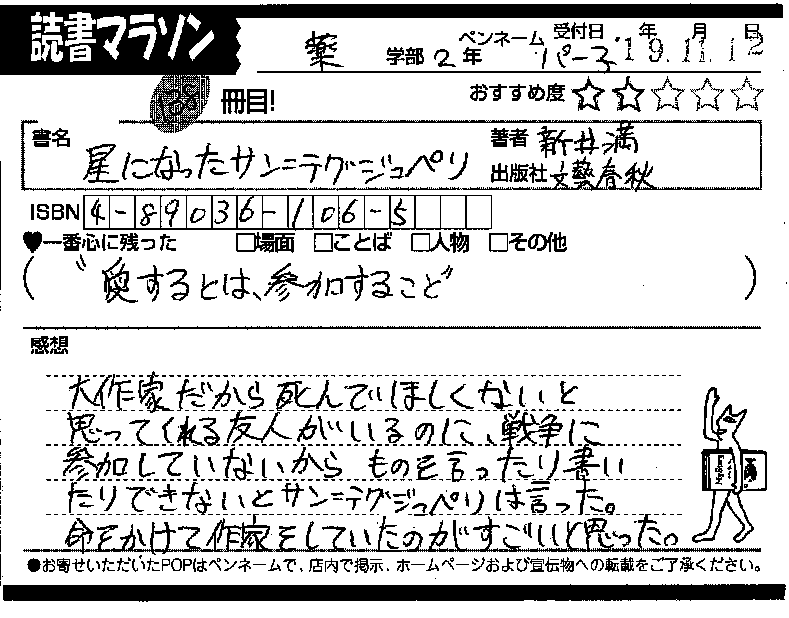 読書マラソン
薬 学部 2 年 ペンネーム パース 受付日 '19年11月12日
冊目!
おすすめ度 ☆☆☆☆☆
書名 星になったサン=テグジュペリ
著者 新井満
出版社 文藝春秋
ISBN 4-89036-106-5
♥一番心に残った □場面 □ことば □人物 □その他
(“愛するとは、参加すること”)
感想
大作家だから死んでほしくないと
思ってくれる友人がいるのに、戦争に
参加していないから ものを言ったり書い
たりできないとサン=テグジュペリは言った。
命をかけて作家をしていたのがすごいと思った。
●お寄せいただいたPOPはペンネームで、店内で掲示、ホームページおよび宣伝物への転載をご了承ください。